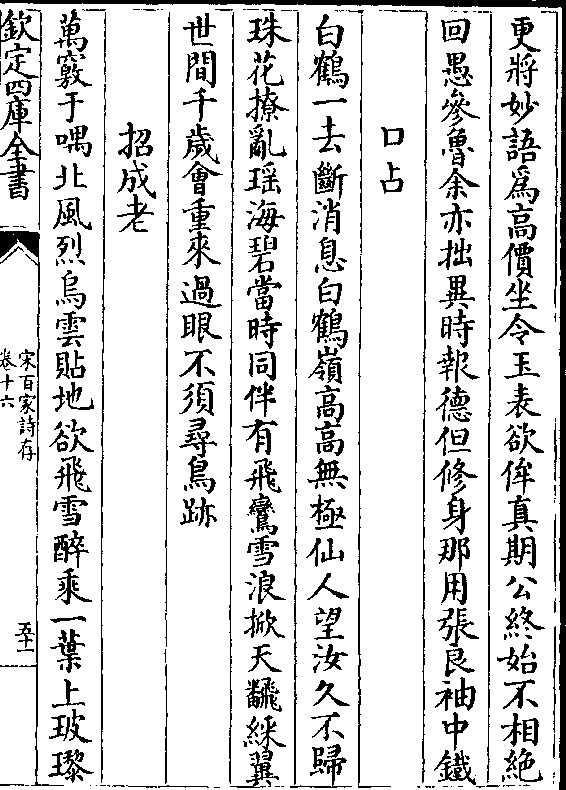 更將妙語爲高價坐令玉表欲侔真期公終始不相絶
回愚參魯余亦拙異時報德但修身那用張良袖中鐵
口占
白鶴一去斷消息白鶴嶺高高無極仙人望汝久不歸
珠花撩亂瑶海碧當時同伴有飛鸞雪浪掀天翻綵翼
世間千歲會重來過眼不須尋鳥跡
招成老
萬竅于喁北風烈烏雲貼地欲飛雪醉乘一葉上玻瓈
欽定四庫全書
宋百家詩存
卷十六
五十一